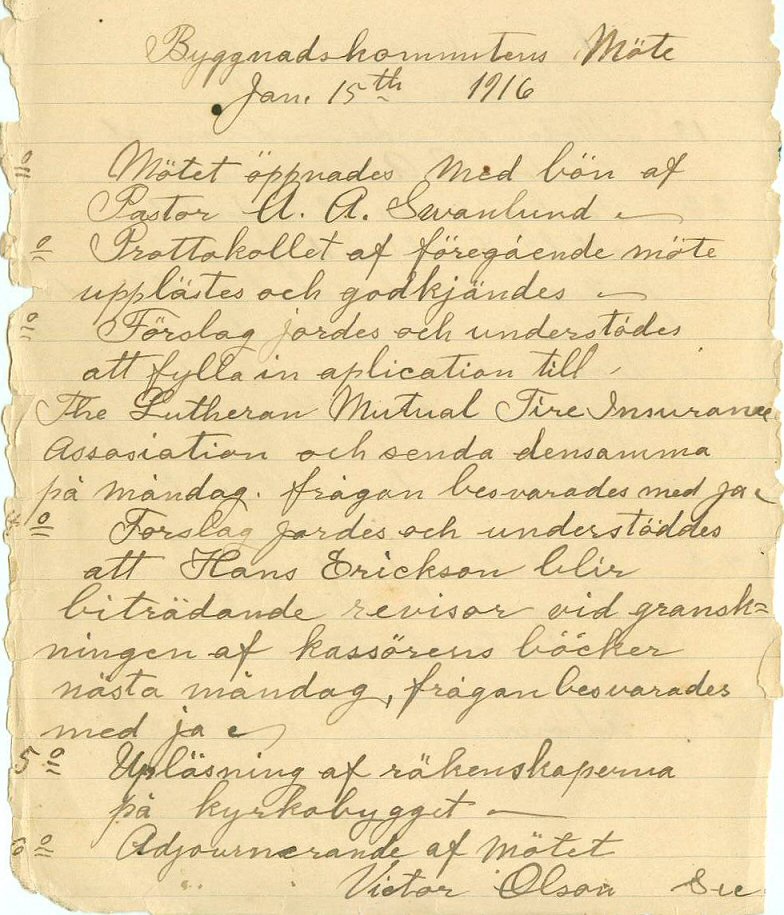 Byggnadskommutens Möte
Jan. 15th 1916
Mötet öppnades med bön af
Pastor A. A. Swanlund
Prottokollet af föregående möte
upplästes och godkjändes
Förslag jordes och understödes
att fylla in aplication till
The Lutheran Mutual Fire Insurance
Assosiation och senda densamma
på måndag. frågan besvarades med ja
Forslag jordes och understöddes
att Hans Erickson blir
biträdande revisor vid gransk=
ningen af kassörens böcker
nästa måndag, frågan besvarades
med ja
5 Upläsning af räkenskaperna
på kyrkobygget
6 Adjournerande af mötet
Victor Olson Sec